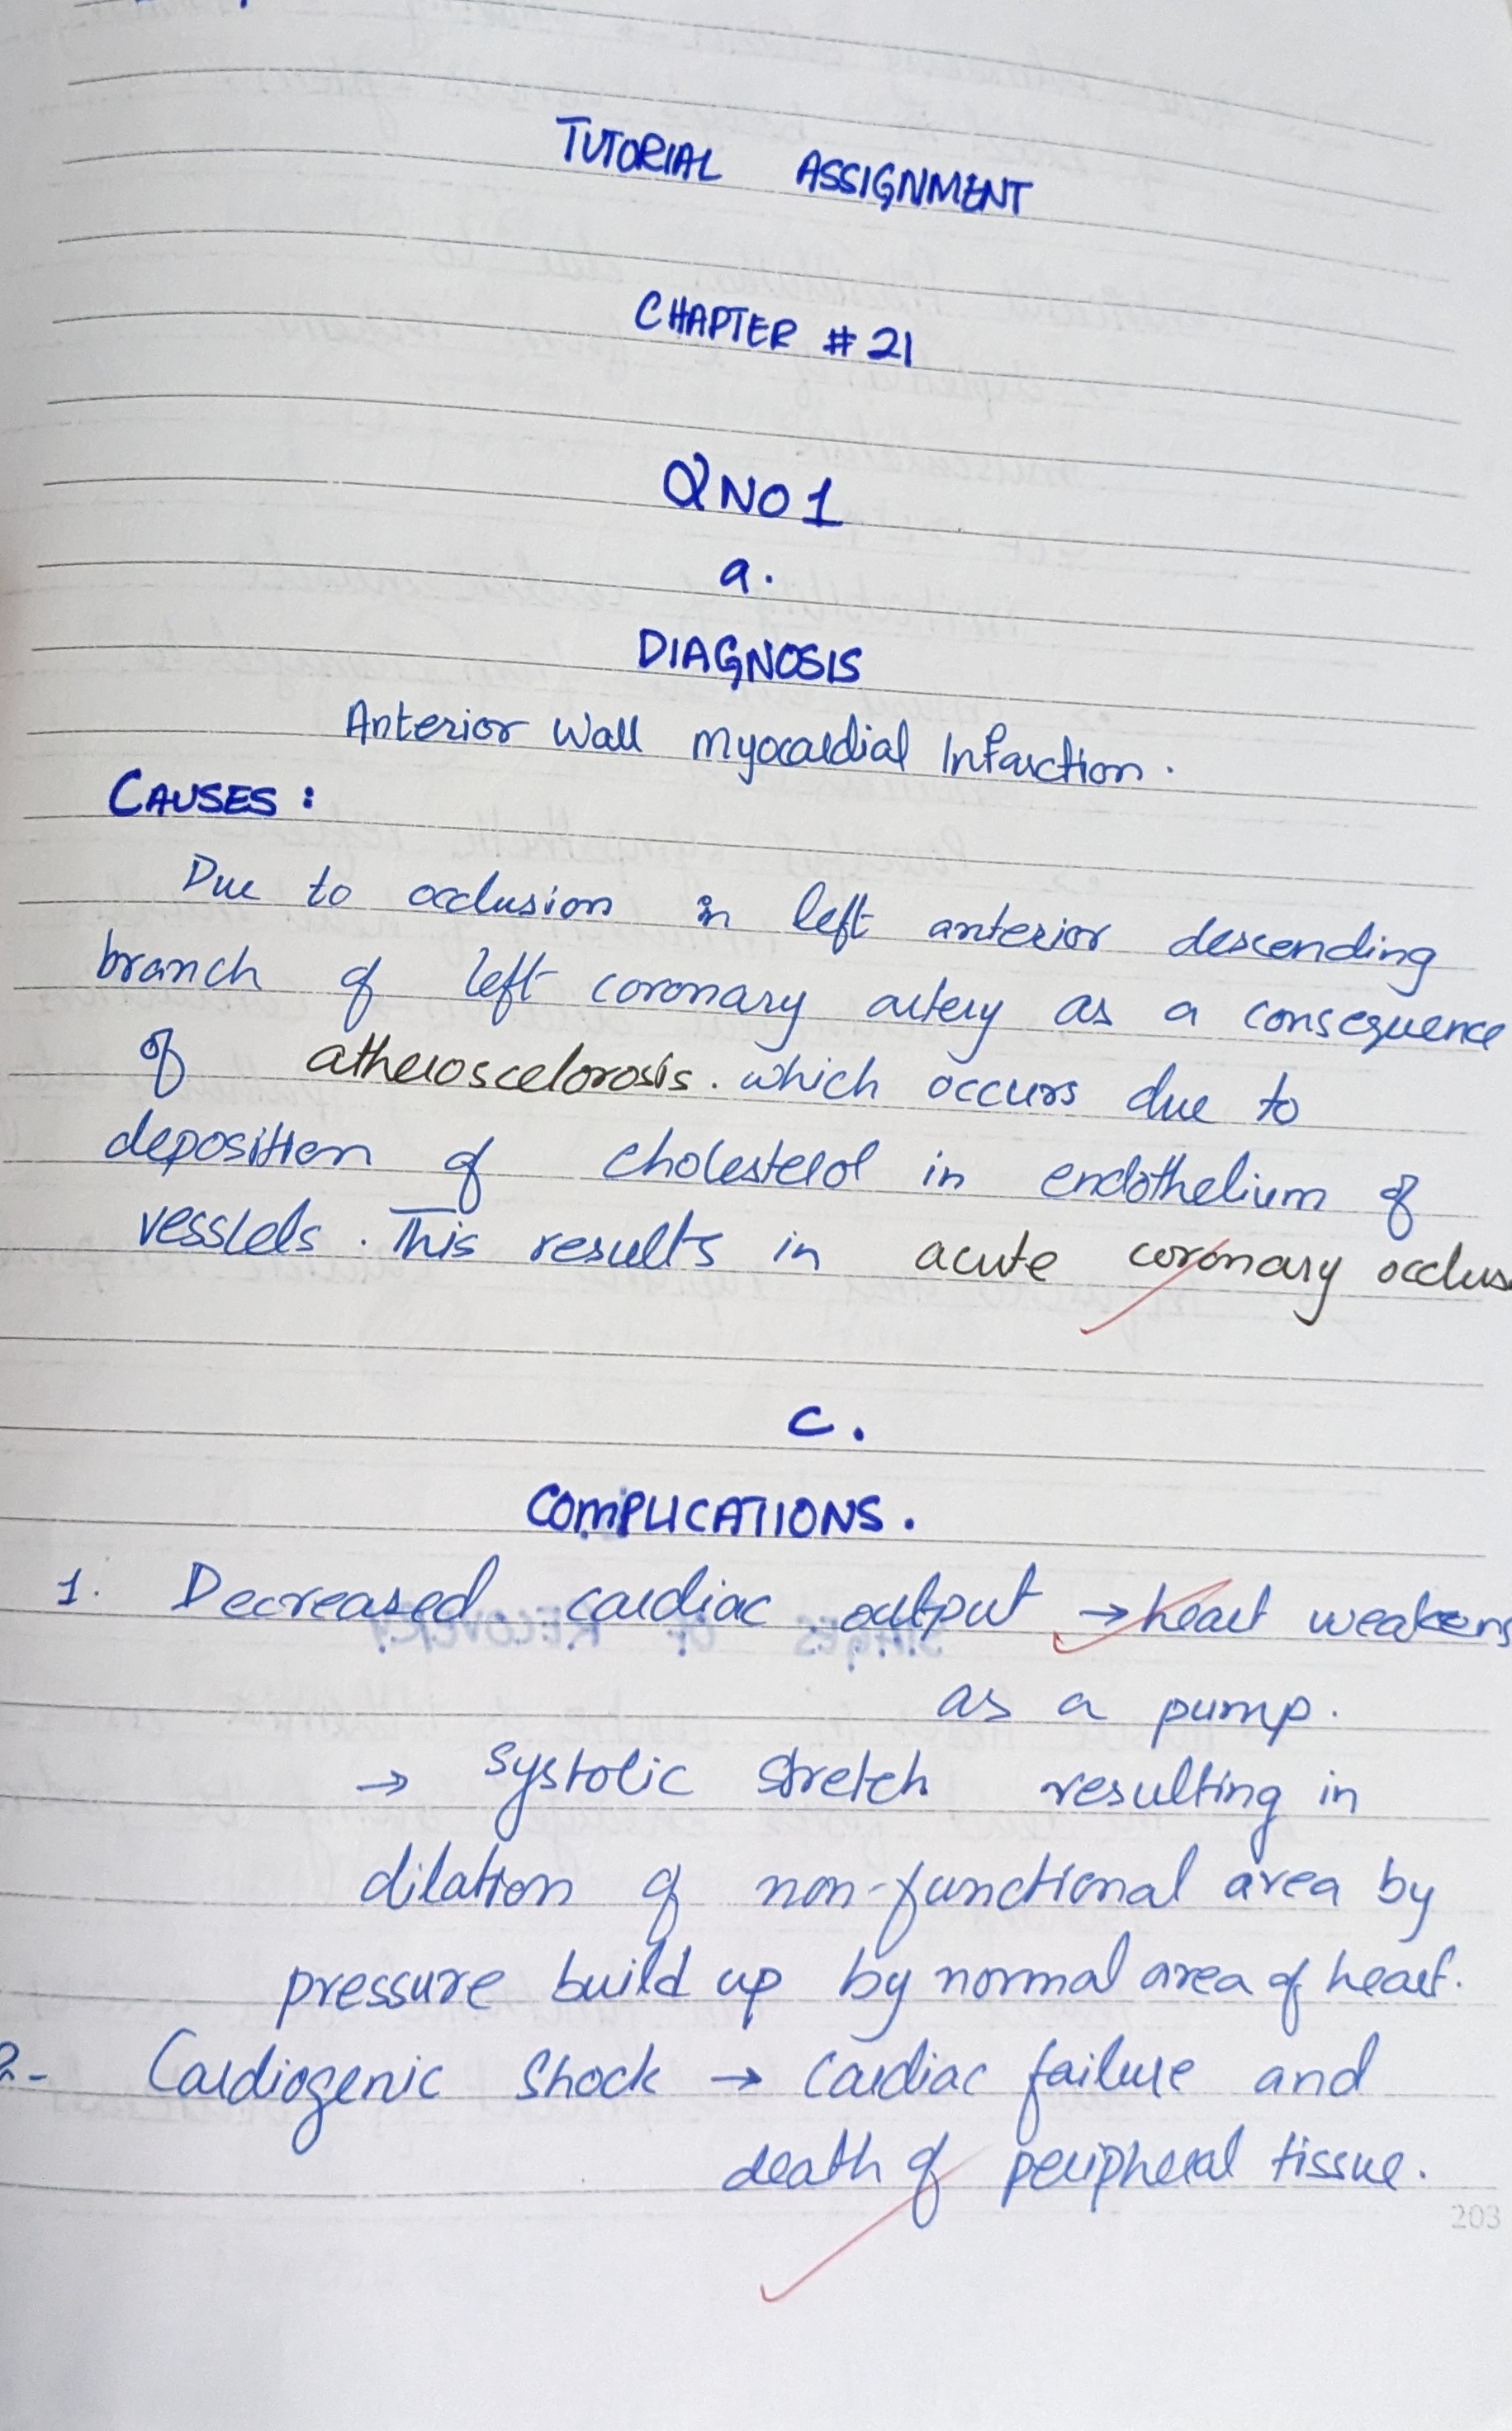 TUTORIAL ASSIGNMENT
CHAPTER # 21
Q NO 1
a.
DIAGNOSIS
Anterior Wall Myocardial Infarction.
CAUSES:
Due to occlusion in left anterior descending
branch of left coronary artery as a consequence
of atheroscelorosis. which occurs due to
deposition of cholesterol in endothelium of
vesslels. This results in acute coronary occlus
c.
COMPLICATIONS.
1. Decreased cardiac output → heart weakens
as a pump.
→ systolic stretch resulting in
dilation of non-functional area by
pressure build up by normal area of heart.
2- Cardiogenic Shock → Cardiac failure and
death of peripheral tissue.
203